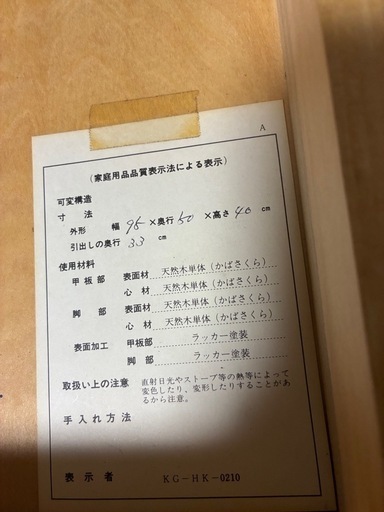 A
(家庭用品品質表示法による表示)
可変構造
寸法
外形 幅 95 × 奥行 50 × 高さ 40 cm
引出しの奥行 33 cm
使用材料
甲板部 表面材 天然木単体(かばさくら)
心材 天然木単体(かばさくら)
脚部 表面材 天然木単体(かばさくら)
心材 天然木単体(かばさくら)
表面加工 甲板部 ラッカー塗装
脚部 ラッカー塗装
取扱い上の注意 直射日光やストーブ等の熱等によって
変色したり、変形したりすることがあ
るから注意。
手入れ方法
表示者 KG-HK-0210